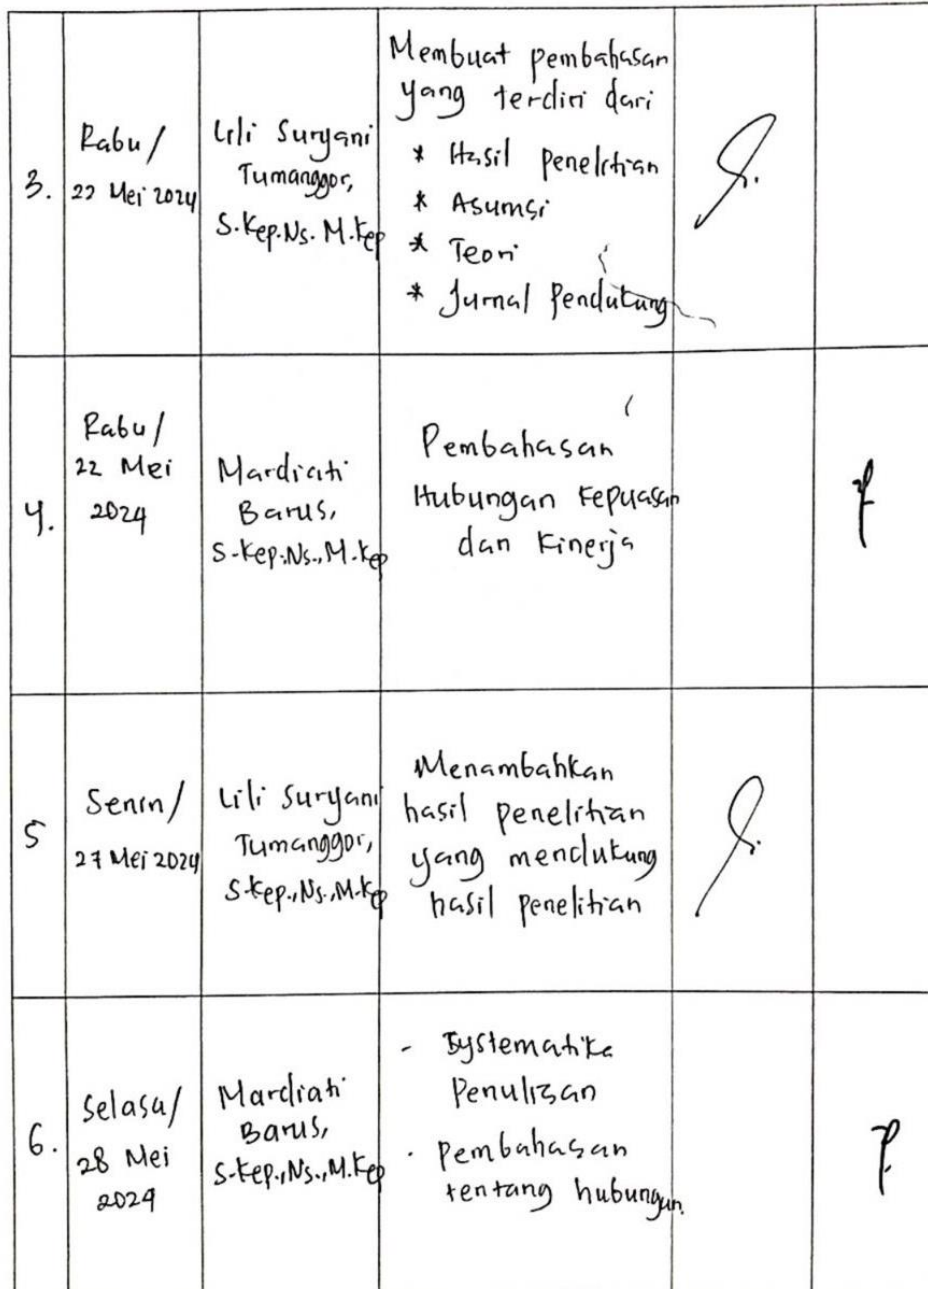 3.
Rabu/
22 Mei 2024
Lili Suryani
Tumanggor,
S.Kep.Ns. M.Kep
Membuat pembahasan
yang terdiri dari
* Hasil penelitian
* Asumsi
* Teori
* Jurnal Pendukung
4.
Rabu/
22 Mei
2024
Mardiati
Barus,
S.Kep.Ns., M.Kep
Pembahasan
Hubungan Kepuasan
dan Kinerja
5
Senin/
27 Mei 2024
Lili Suryani
Tumanggor,
S.Kep., Ns., M.Kep
Menambahkan
hasil penelitian
yang mendukung
hasil penelitian
6.
Selasa/
28 Mei
2024
Mardiati
Barus,
S.Kep., Ns., M.Kep
- Systematika
Penulisan
- Pembahasan
tentang hubungan.